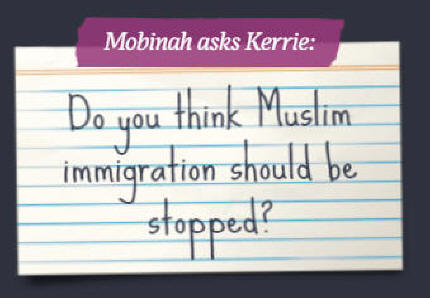 Mobinah asks Kerrie:
Do you think Muslim
immigration should be
stopped?